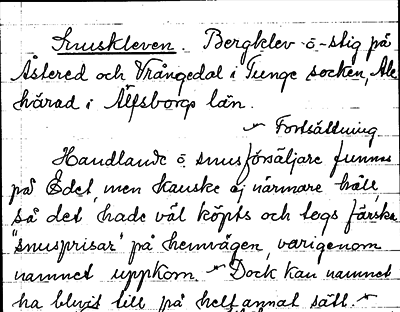 Snuskleven. Bergklev o-stig på
Åstered och Vrångedal i Tunge socken, Ale
härad i Älfsborgs län.
Fortsättning
Handlande o snusförsäljare funnus
på Edet, men kanske ej närmare håll,
så det hade väl köpts och togs färska
"snusprisar" på hemvägen, varigenom
namnet uppkom. Dock kan namnet
ha blivit till på helt annat sätt.